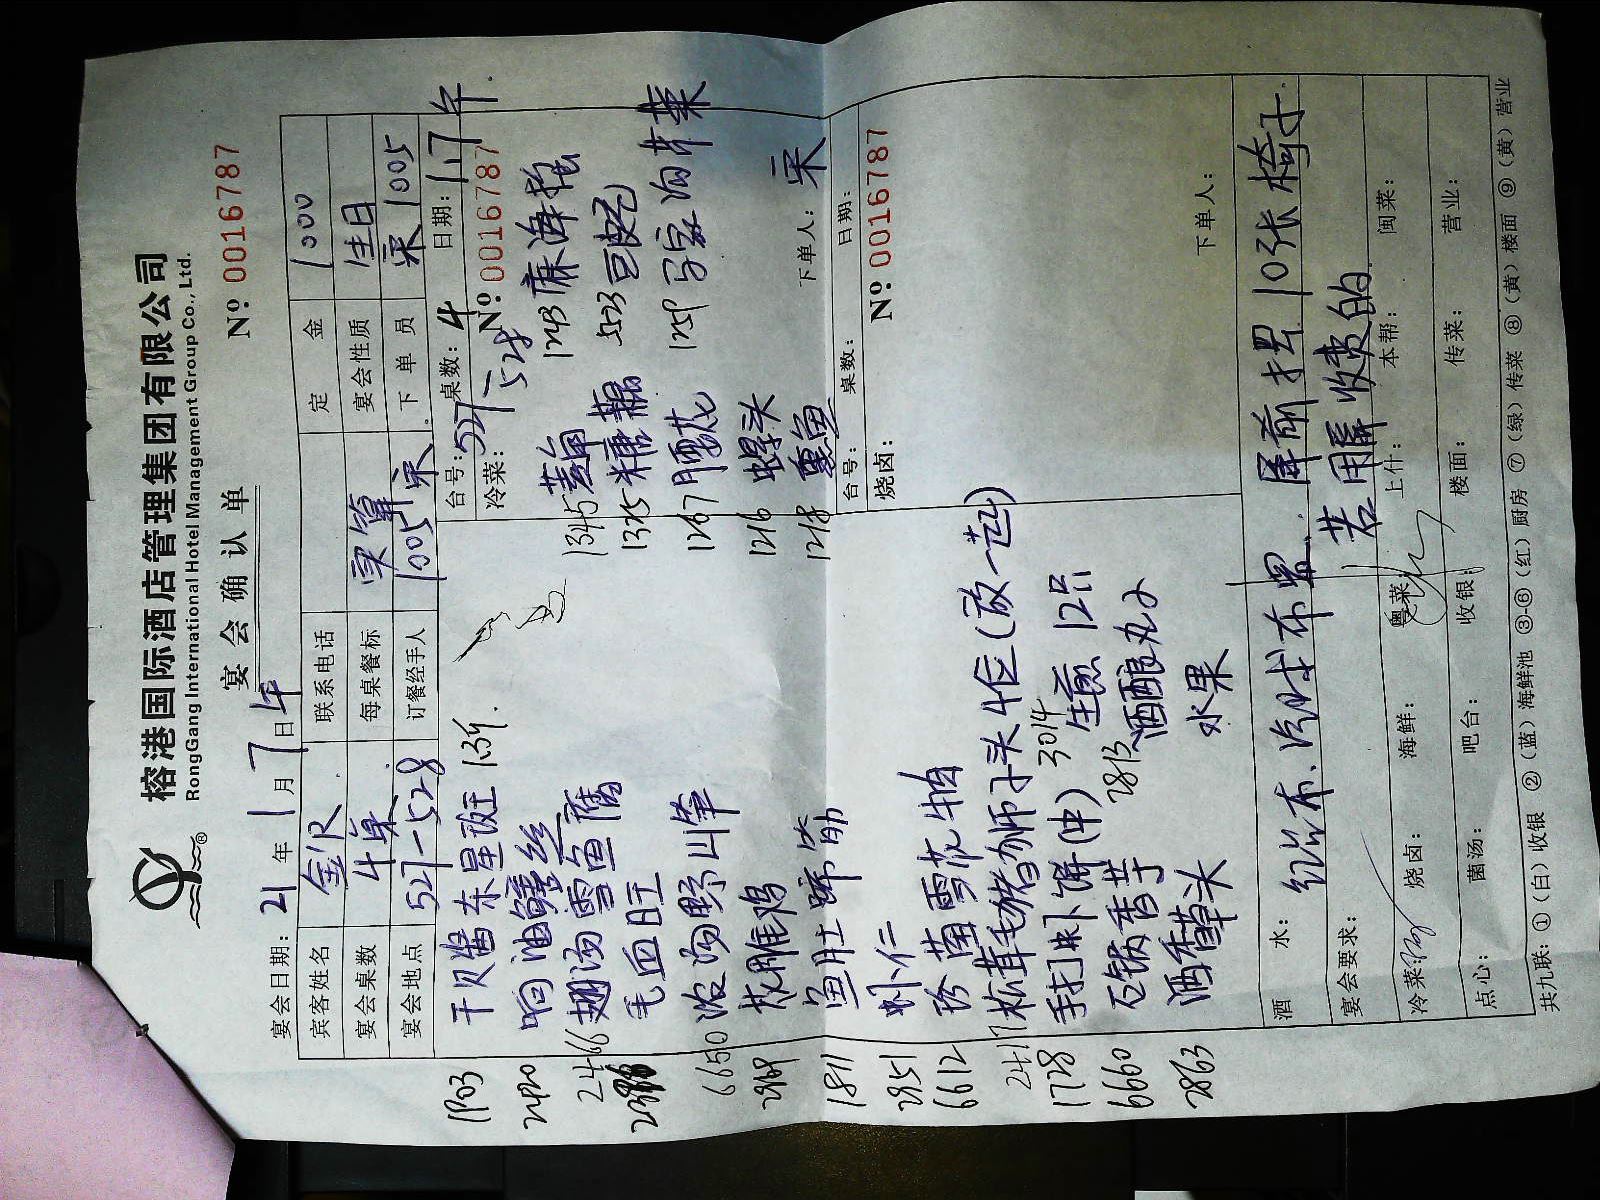 榕港国际酒店管理集团有限公司
RongGang International Hotel Management Group Co., Ltd.
宴会确认单
宴会日期: 21 年 1 月 7 日 午 Nº 0016787
宾客姓名 联系电话 定金 1000
宴会桌数 4桌 每桌餐标 实算 宴会性质 生日
宴会地点 527-528 订餐经手人 1005 宋 下单员 宋 1005
台号: 527-528 桌数: 4 日期: 1.7 午
冷菜: Nº 0016787
1903 干贝酱东星斑 1.3斤
响油鳝丝
2466 翅汤雪鱼腐
毛血旺
6650 浓汤野山笋
花雕鸡
1811 鱼肚蹄筋
2851 虾仁
6612 珍菌雪花牛柏
2417 松茸毛猪狮子头4位(放一起)
1728 手打米卜饼(中) 3014 生煎 12只
6660 石锅香芋 2813 酒酿丸子
2863 酒香草头 水果
1345 1243 麻海蜇
1325 糖藕 523 豆豉
1267 腰花 1259
1216 螺头
1218 熏鱼 下单人: 宋
台号: 桌数: 日期:
烧卤: Nº 0016787
下单人:
酒水: 红台布、汽球布置. 屏前摆10张椅子
宴会要求: 若用屏收费的
冷菜: 烧卤: 海鲜: 粤菜: 上什: 本帮: 闽菜:
点心: 菌汤: 吧台: 收银: 楼面: 传菜: 营业:
共九联: ①(白)收银 ②(蓝)海鲜池 ③-⑥(红)厨房 ⑦(绿)传菜 ⑧(黄)楼面 ⑨(黄)营业